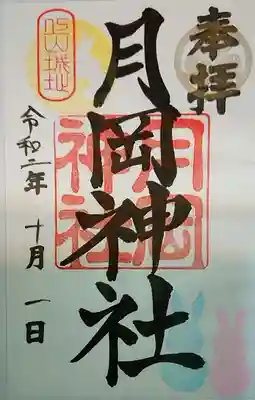 奉拝
月岡神社
月岡神社
令和二年 十月 一日